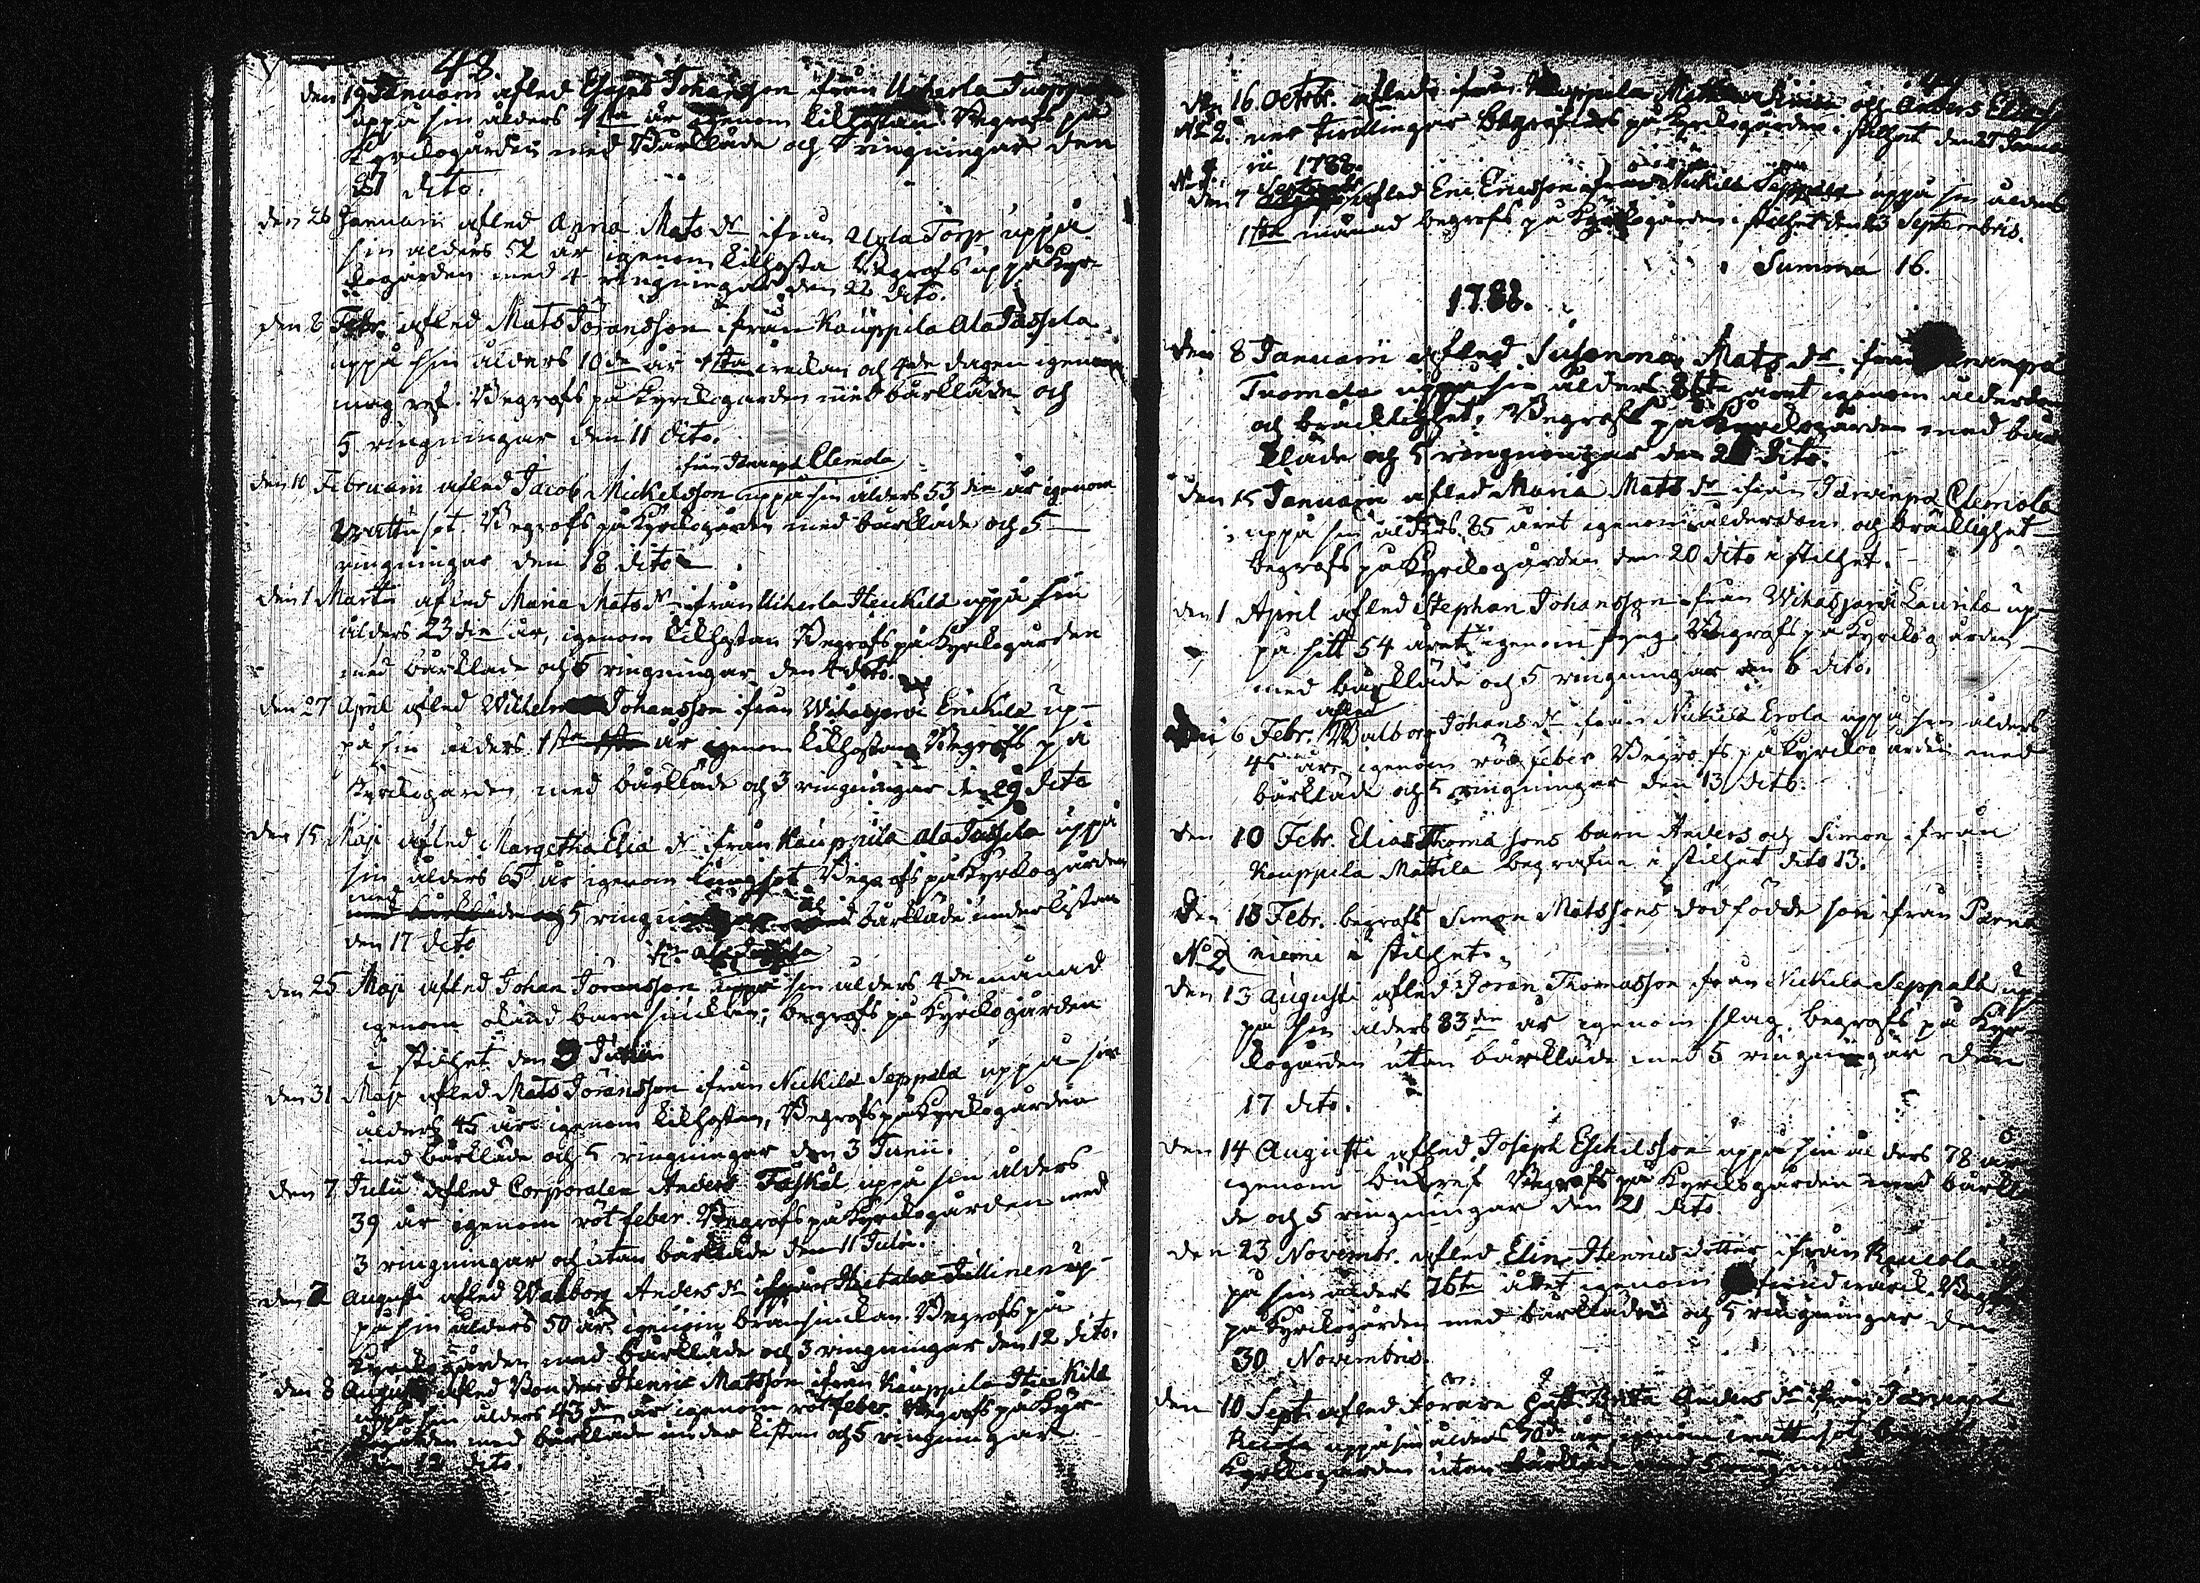 48.
den 19 Januarii afled Esajas Johansson ifrån Uiherla Tuoppala
uppå sin ålders 1sta år igenom kikhostan Begrofs på
Kyrckogården med Bårkläde och ringningar den
21 dito.
den 26 Januarii afled Anna Mats dr ifrån Uglatorp, uppå
sin ålders 52 år igenom kikhosta Begrofs uppå Kyr-
kogården med 4 ringningar den 22 dito.
den 8 Febr. afled Mats Jöransson ifrån Kauppila Ala Jassila
uppå sin ålders 10de år 1sta veckan och 4de dagen igenom
mag ref. Begrofs på Kyrckogården med bårkläde och
5 ringningar den 11 dito.
från Clemola
den 10 Februarii afled Jacob Mickelsson uppå sin ålders 53 die år igenom
Wattusot. Begrofs på Kyrckogården med bårkläde och 5
ringningar den 18 dito
den 1 Martii afled Maria Mats dr ifrån Uiherla Heickilä uppå sin
ålders 23 die år, igenom kikhostan Begrofs på Kyrckogården
med bårkläde och 5 ringningar den 4 dito.
den 27 April afled Wilhelm Johansson ifrån Wihasjärvi Erickilä up-
på sin ålders 1sta år igenom kikhostan Begrofs på
Kyrckogården med bårkläde och 3 ringningar den 29 dito
den 15 Maji afled Margetha Elia dr ifrån Kauppila Ala Jassila uppå
sin ålders 65 år igenom lungsot Begrofs på Kyrckogården
med 5 ringningar och bårkläde under kistan
den 17 dito
den 25 Maji afled Johan Jöransson uppå sin ålders 4de månad
igenom okänd barn sjuckdom; begrofs på Kyrckogården
i stilhet den 3 Junii
den 31 Maji afled Mats Jöransson ifrån Nickilä Seppälä uppå sin
ålders 45 år igenom kikhostan, Begrofs på Kyrckogården
med bårkläde och 5 ringningar den 3 Junii.
den 7 Julii afled Corporalen Anders Faskål uppå sin ålders
39 år igenom rötfeber. Begrofs på Kyrckogården med
3 ringningar och utan bårkläde den 11 Julii.
den 2 Augusti afled Walborg Anders dr ifrån Hietala Jullinen up-
på sin ålders 50 år igenom bränsjuckan. Begrofs på
Kyrckogården med bårkläde och 3 ringningar den 12 dito.
den 8 Augusti afled Bonden Henric Matsson ifrån Kauppila Heickilä
uppå sin ålders 43 de år igenom rötfeber. Begrofs på Kyr-
kogården med bårkläde under kistan och 5 ringningar
den 12 dito.
49
den 16 Octobr. afled ifrån Kauppila och Anders
No 2. tvillingar Begrafne på Kyrckogården i stilhet den 25 Janua-
rii 1788.
den 7 Septembr. afled Eric Ericsson ifrån Nickilä Seppälä uppå sin ålders
1sta månad begrofs på Kyrckogården i stilhet den 23 Septembris.
Summa 16.
1788.
den 8 Januarii afled Susanna Mats dr. ifrån
Tuomala uppå sin ålders 86te året igenom ålderdom
och bräcklighet. Begrofs på Kyrckogården med bår
kläde och 5 ringningar den 20 dito.
den 15 Januarii afled Maria Mats dr ifrån Järvenpä Clemola
uppå sin ålders 85 året igenom ålderdom och bräcklighet
begrofs på Kyrckogården den 20 dito i stilhet.
den 1 April afled Stephan Johansson ifrån Wihasjärvi Laurila up-
på sitt 54 året igenom styng. Begrofs på Kyrckogården
med bårkläde och 5 ringningar den 6 dito.
afled
den 6 Febr. Walborg Johans dr ifrån Nickilä Erola uppå sin ålders
45 år igenom röt feber Begrofs på Kyrckogården med
bårkläde och 5 ringningar den 13 dito.
den 10 Febr. Elias Thoma sons barn Anders och Simon ifrån
Kauppila Mattila begrafne i stilhet dito 13.
den 13 Febr. begrofs Simon Matssons dödfödde son ifrån Parna
No 2) niemi i stilhet.
den 13 Augusti afled Jöran Thomasson ifrån Nickilä Seppälä up
på sin ålders 83 die år igenom slag. begrofs på Kyr-
kogården utan bårkläde med 5 ringningar den
17 dito.
den 14 Augusti afled Joseph Eschilsson uppå sin ålders 78 år
igenom bukref Begrofs på Kyrckogården med bårklä
de och 5 ringningar den 21 dito.
den 23 Novembr. afled Elin Henrics dotter ifrån Raucola
på sin ålders 76te året igenom Begr
på Kyrckogården med bårkläde och 5 ringningar den
30 Novembris.
den 10 Sept. afled Brita Anders dr ifrån Järvenpä
uppå sin ålders 70de år igenom wattusot
Kyrckogården utan bårkläde med 5 ringningar